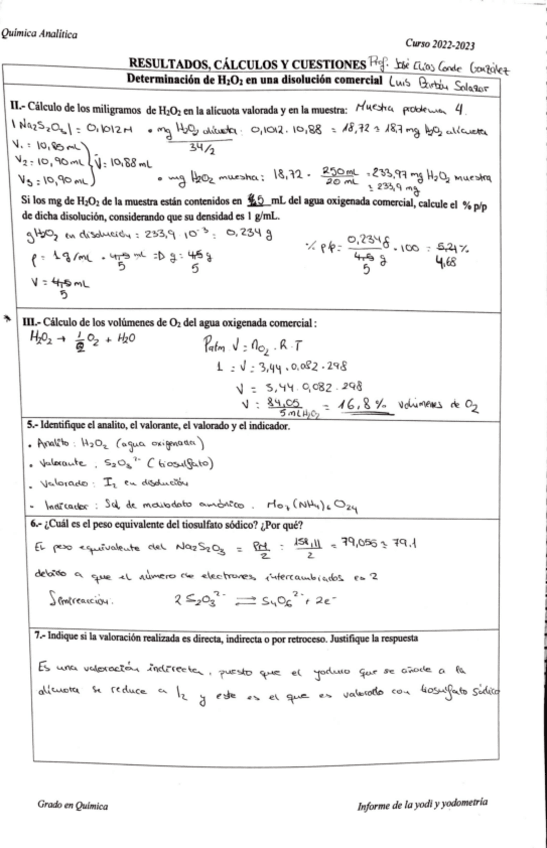 Química Analítica
Curso 2022-2023
RESULTADOS, CÁLCULOS Y CUESTIONES Prof. José Elías Conde González
Determinación de H₂O₂ en una disolución comercial Luis Bartón Salazar
II.- Cálculo de los miligramos de H₂O₂ en la alícuota valorada y en la muestra: Muestra problema 4.
|Na₂S₂O₃| = 0,1012M • mg H₂O₂ alícuota: 0,1012 · 10,88 = 18,72 ≈ 18,7 mg H₂O₂ alícuota
34/2
V₁ = 10,85 mL
V₂ = 10,90 mL V̄ = 10,88 mL
V₃ = 10,90 mL • mg H₂O₂ muestra: 18,72 · 250mL/20 mL = 233,97 mg H₂O₂ muestra
≈ 233,9 mg
Si los mg de H₂O₂ de la muestra están contenidos en 5 mL del agua oxigenada comercial, calcule el % p/p
de dicha disolución, considerando que su densidad es 1 g/mL.
g H₂O₂ en disolución = 233,9 · 10⁻³ = 0,234 g
ρ = 1 g/mL · 4,5 mL => g = 4,5 g
5 5
% p/p = 0,234g/4,5 g · 100 = 5,21%
5 4,68
V = 4,5 mL
5
III.- Cálculo de los volúmenes de O₂ del agua oxigenada comercial :
H₂O₂ → ½ O₂ + H₂O
Patm V = nO₂ · R · T
1 · V = 3,44 · 0,082 · 298
V = 3,44 · 0,082 · 298
V = 84,05/5 mL H₂O₂ = 16,8 % volúmenes de O₂
5.- Identifique el analito, el valorante, el valorado y el indicador.
• Analito: H₂O₂ (agua oxigenada)
• Valorante: S₂O₃²⁻ (tiosulfato)
• Valorado: I₂ en disolución
• Indicador: Sal de molibdato amónico. Mo₇(NH₄)₆O₂₄
6.- ¿Cuál es el peso equivalente del tiosulfato sódico? ¿Por qué?
El peso equivalente del Na₂S₂O₃ = PM/2 = 158,11/2 = 79,056 ≈ 79,1
debido a que el número de electrones intercambiados es 2
Semireacción: 2 S₂O₃²⁻ ⇌ S₄O₆²⁻ + 2e⁻
7.- Indique si la valoración realizada es directa, indirecta o por retroceso. Justifique la respuesta
Es una valoración indirecta, puesto que el yoduro que se añade a la
alícuota se reduce a I₂ y este es el que es valorado con tiosulfato sódico
Grado en Química
Informe de la yodi y yodometría